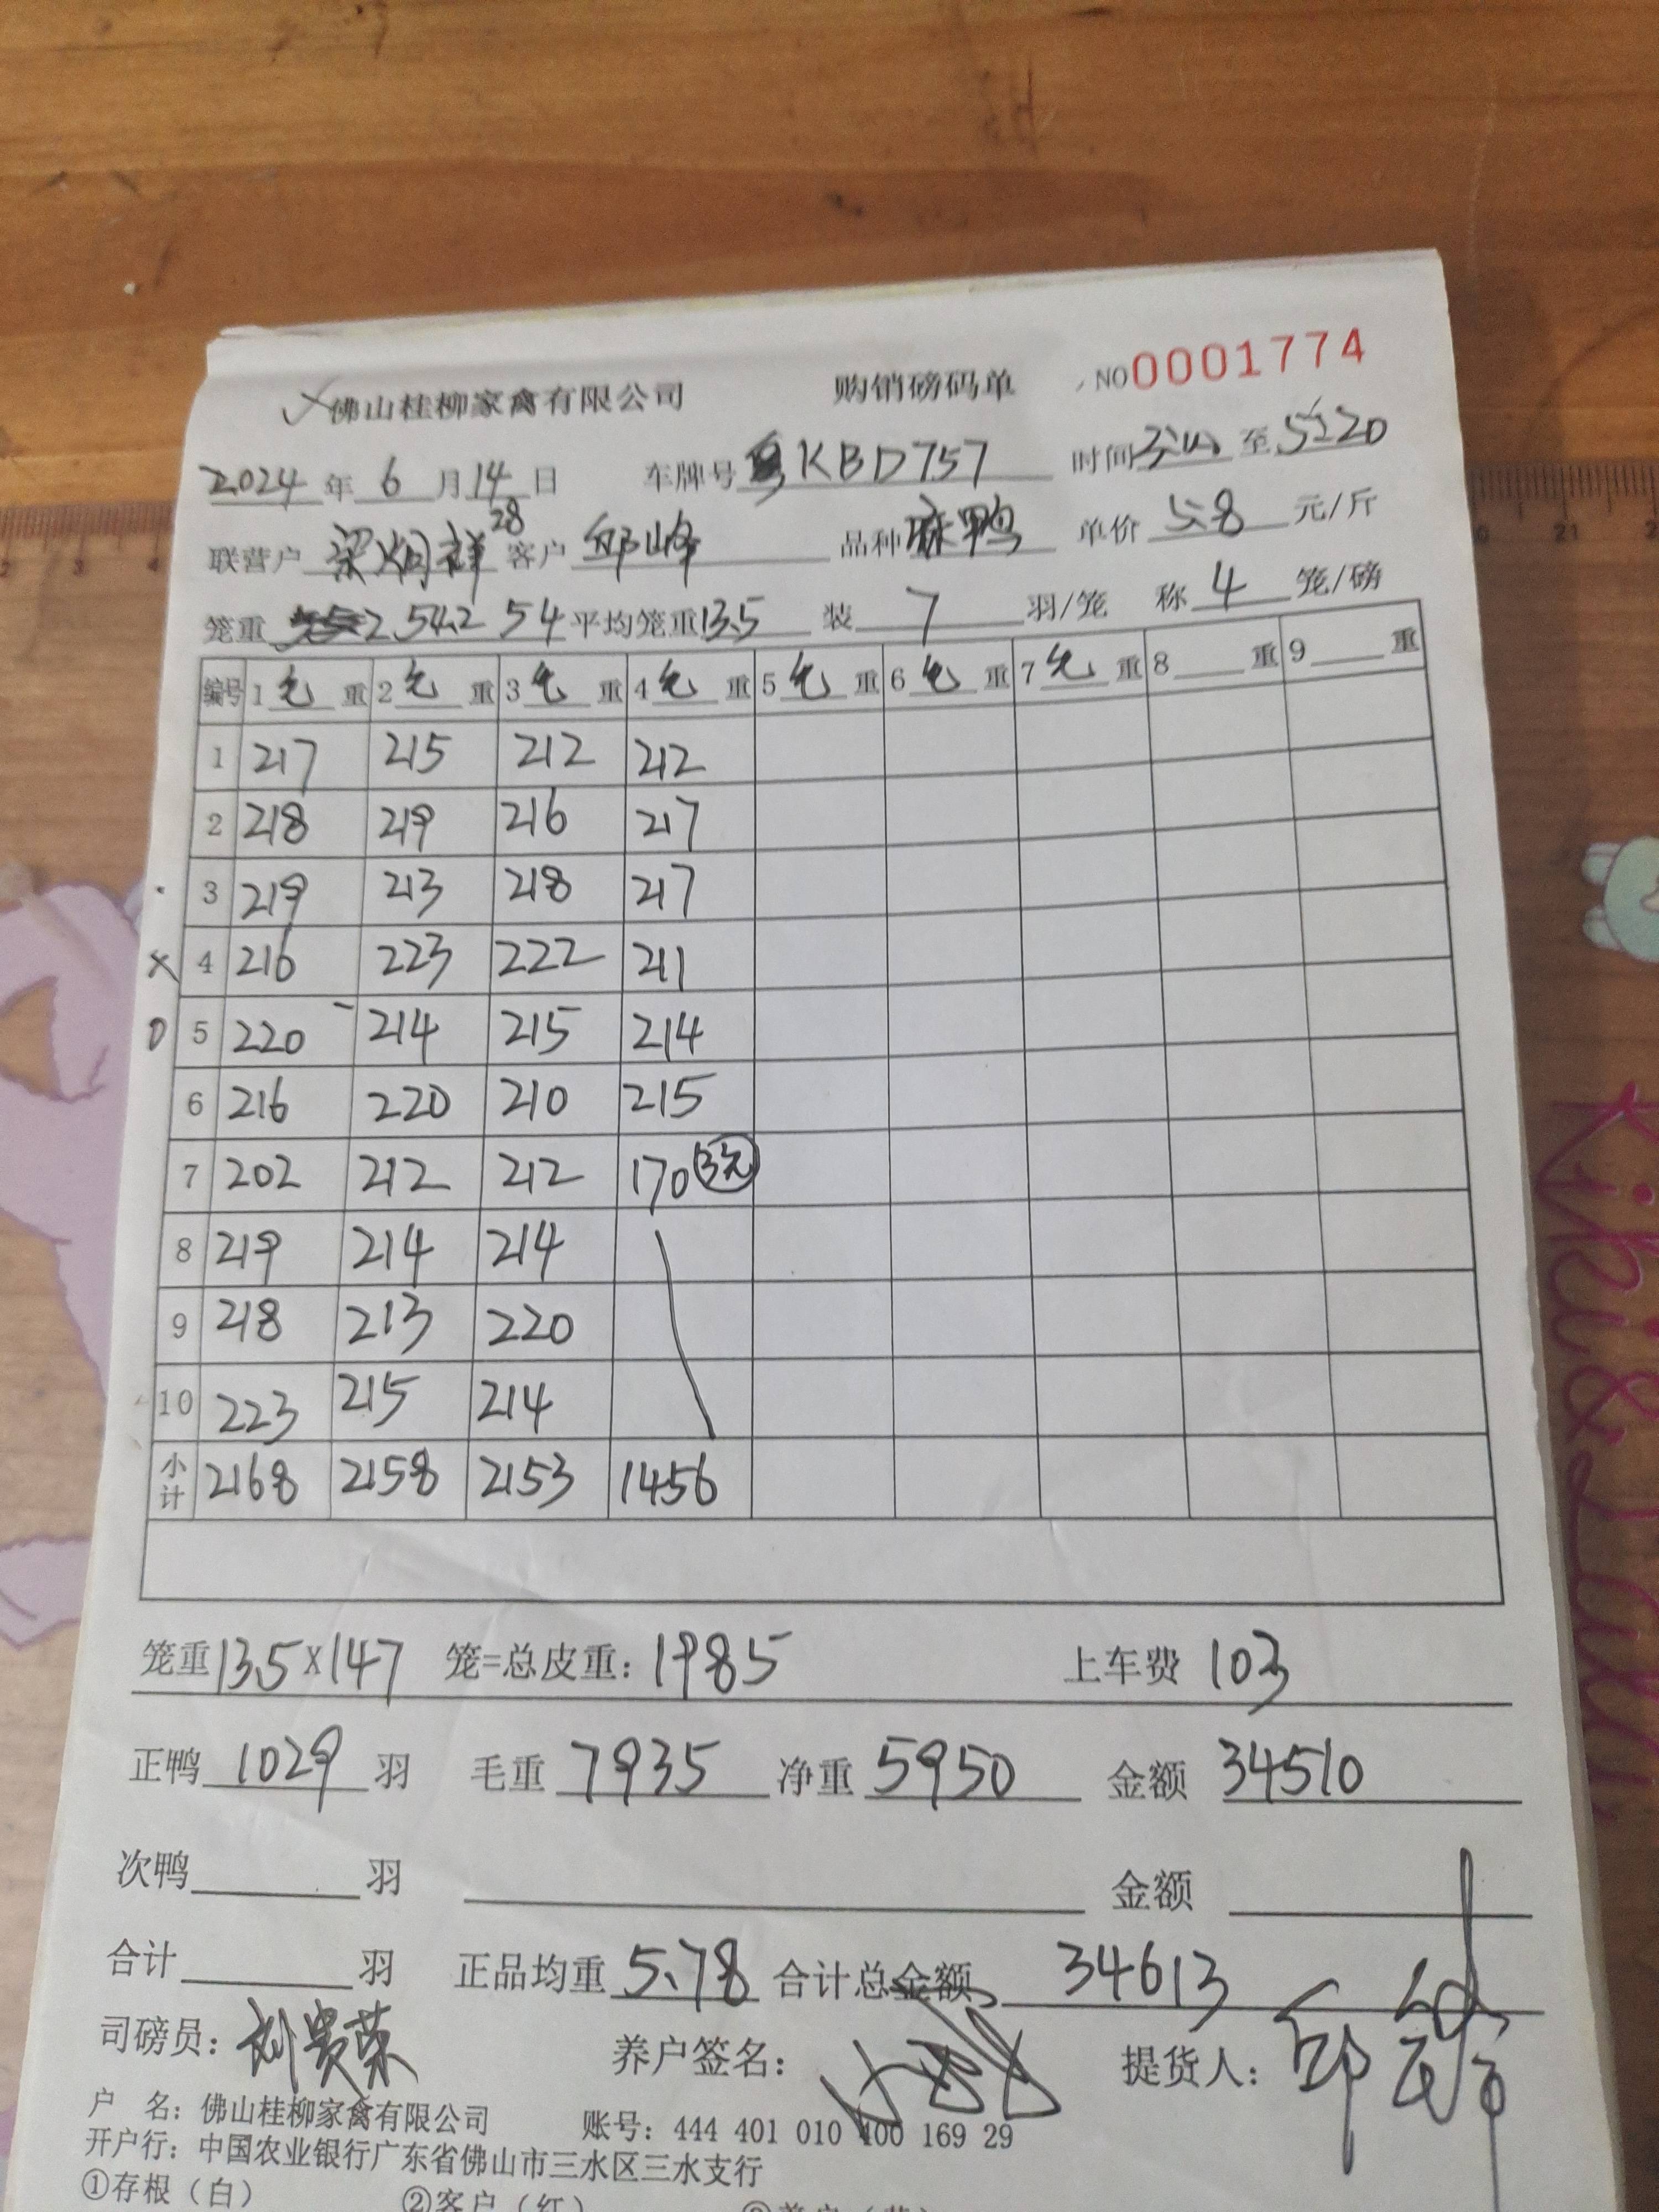 佛山桂柳家禽有限公司 购销磅码单 NO 0001774
2024年6月14日 车牌号 粤KBD757 时间 至 5:20
联营户 梁炳祥 28 客户 邱峰 品种 麻鸭 单价 5.8 元/斤
笼重 54.2 54 平均笼重 13.5 装 7 羽/笼 称 4 笼/磅
编号 1 重 2 重 3 重 4 重 5 重 6 重 7 重 8 重 9 重
1 217 215 212 212
2 218 219 216 217
3 219 213 218 217
4 216 223 222 211
5 220 214 215 214
6 216 220 210 215
7 202 212 212 170
8 219 214 214
9 218 213 220
10 223 215 214
小计 2168 2158 2153 1456
笼重 13.5 X 147 笼=总皮重: 1985 上车费 103
正鸭 1029 羽 毛重 7935 净重 5950 金额 34510
次鸭 羽 金额
合计 羽 正品均重 5.78 合计总金额 34613
司磅员: 刘贵荣 养户签名: 提货人: 邱
户 名: 佛山桂柳家禽有限公司 账号: 444 401 010 400 169 29
开户行: 中国农业银行广东省佛山市三水区三水支行
①存根（白） ②客户（红）